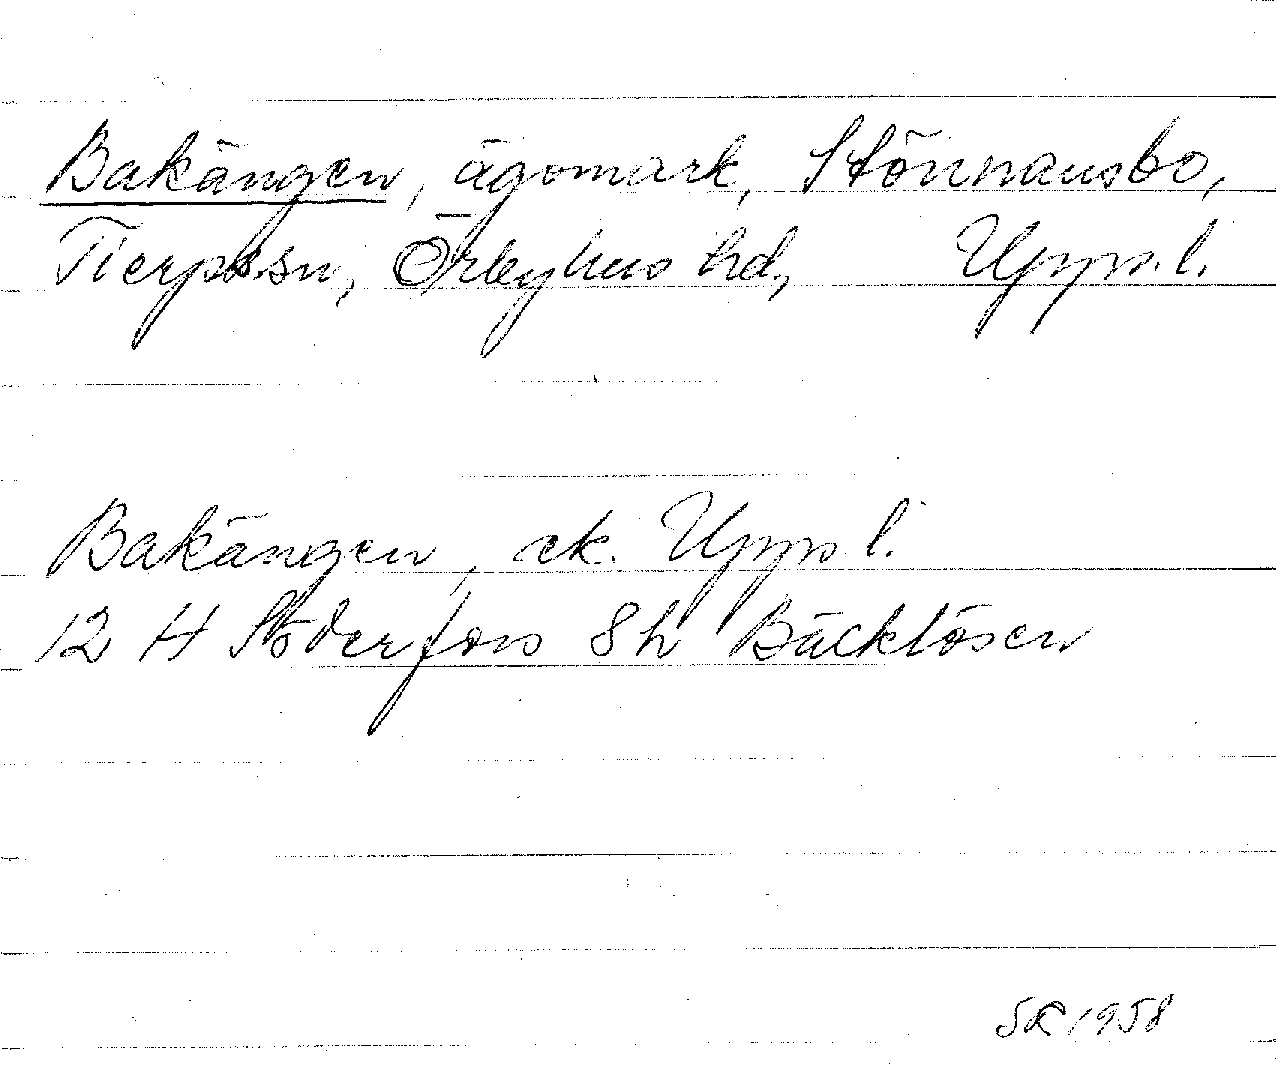 Bakängen, ägomark, Störmansbo,
Tierps sn, Örbyhus hd, Upps. l.
Bakängen, ek. Upps l.
12 H Söderfors 8h Bäcklösen
SR 1958